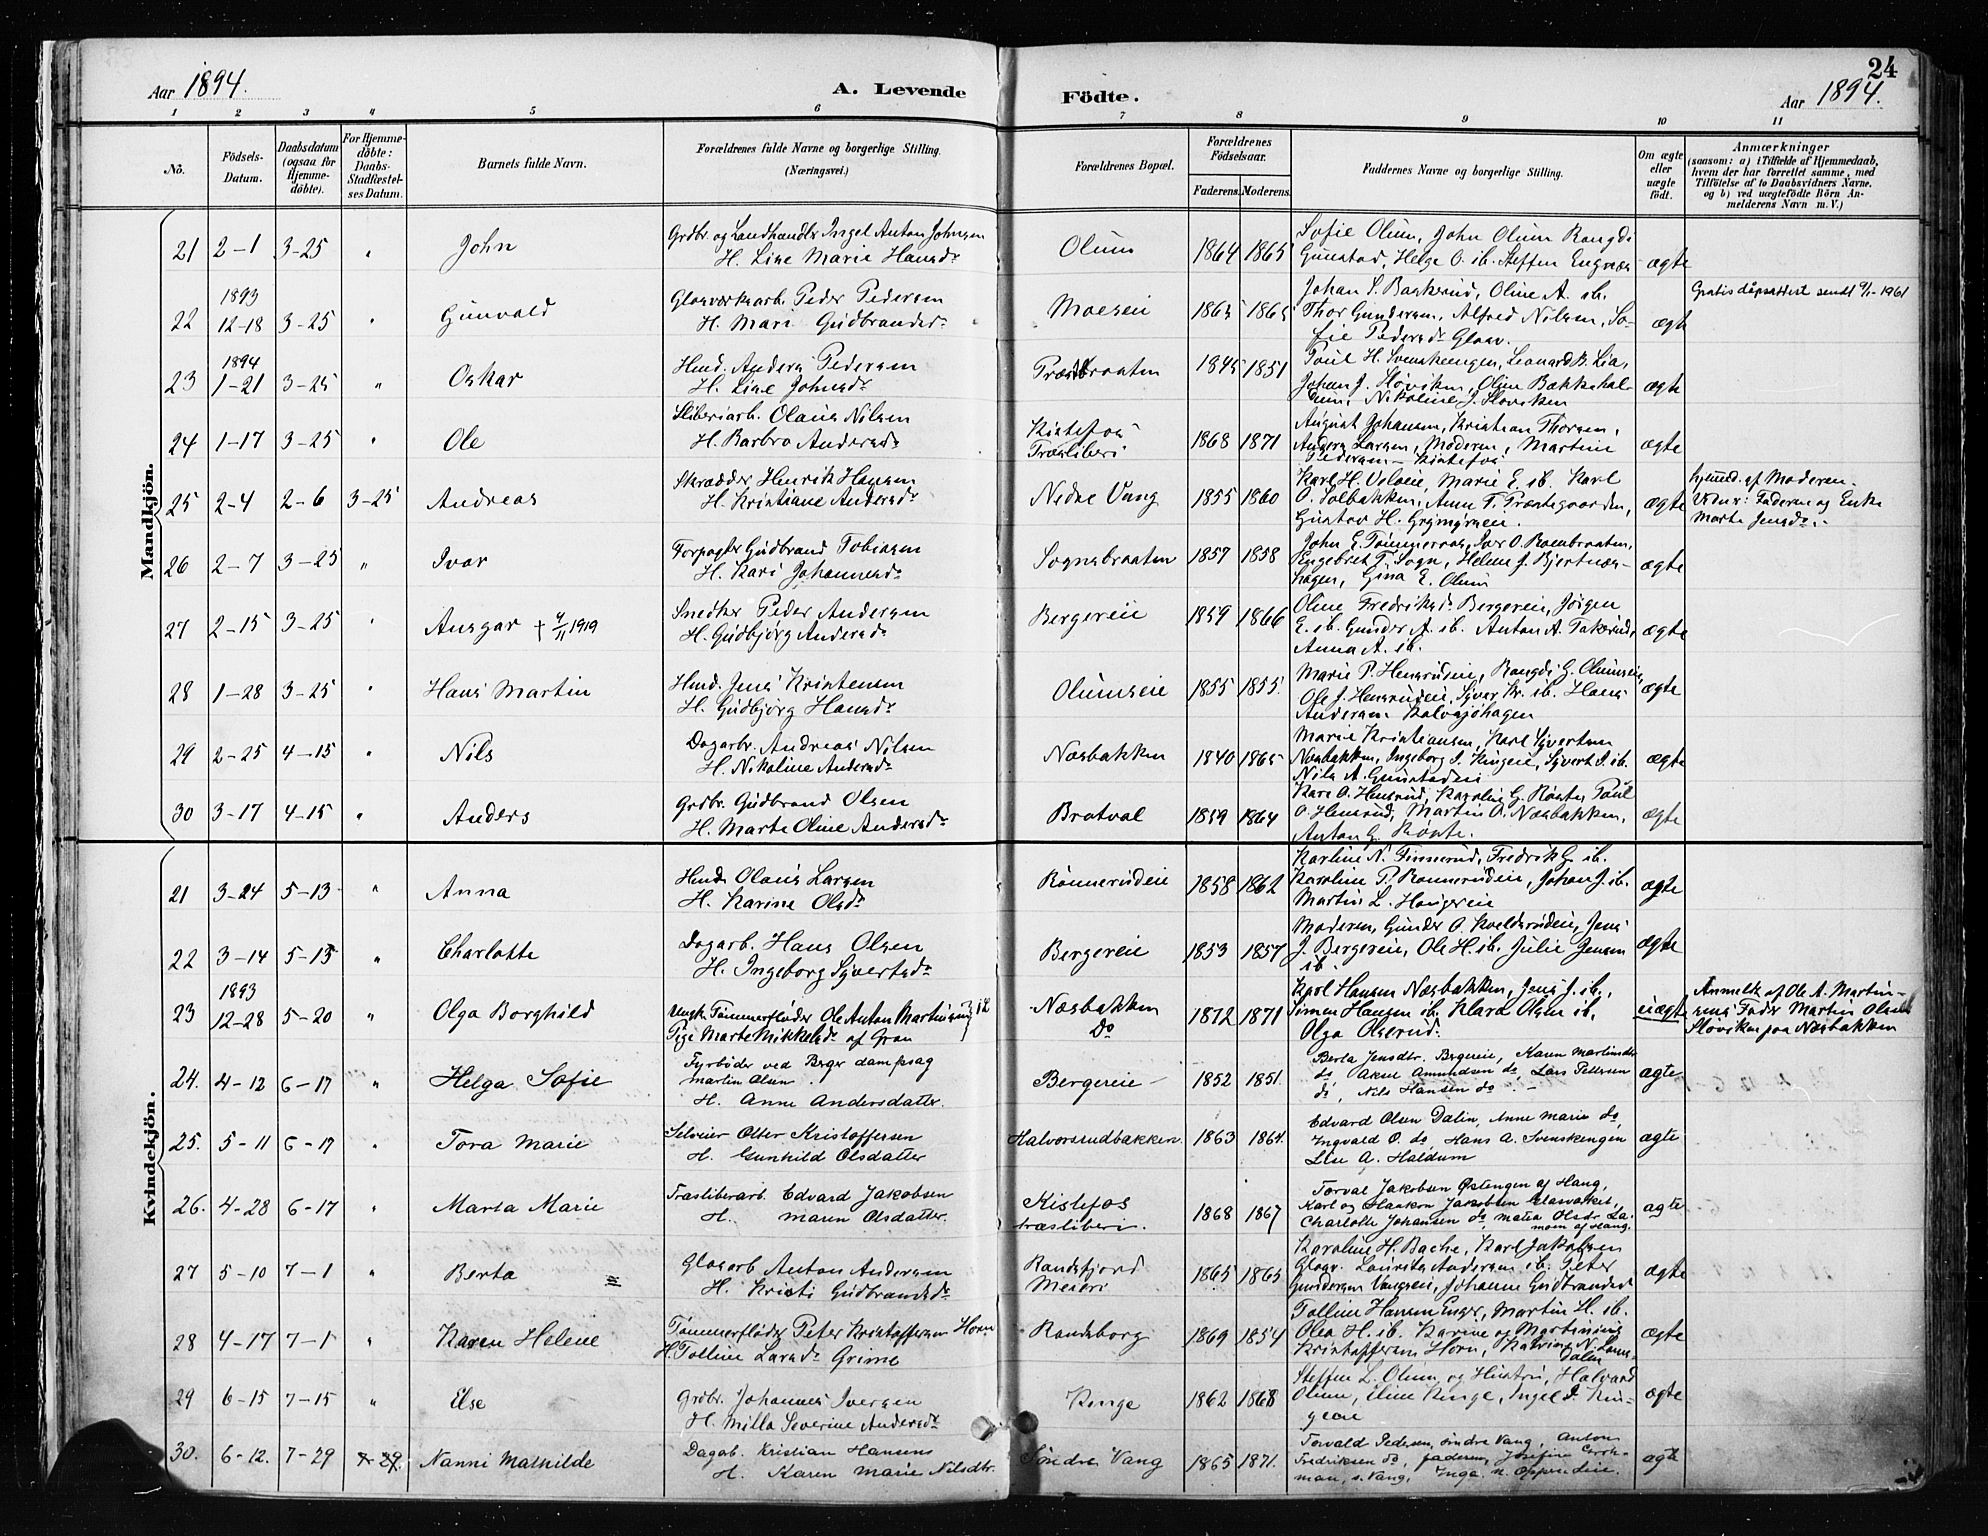 24
Aar 1894.
A. Levende
Födte.
Aar 1894.
1 2 3 4 5 6 7 8 9 10 11
No.
Födsels-Datum.
Daabsdatum (ogsaa för Hjemmedöbte).
For Hjemmedöbte: Daabs-Stadfæstelses Datum.
Barnets fulde Navn.
Forældrenes fulde Navne og borgerlige Stilling. (Næringsvei.)
Forældrenes Bopæl.
Forældrenes Födselsaar.
Faderens. Moderens.
Faddernes Navne og borgerlige Stilling.
Om ægte eller uægte födt.
Anmærkninger
(saasom: a) i Tilfælde af Hjemmedaab,
hvem der har forrettet samme, med
Tilföielse af to Daabsvidners Navne.
og b) ved uægtefödte Börn An-
melderens Navn m. V.)
Mandkjön.
21 2-1 3-25 " John
Grdbr. og Landhandler Ingel Anton Johnsen
H. Line Marie Hansdr
Olum 1864 1865
Sofie Olum, John Olum Rangdi
Gunstad, Helge O. ib. Steffen Engnæs
ægte
22 1893 12-18 3-25 " Gunvald
Glasværksarb. Peder Pedersen
H. Mari Gudbrandsdr
Moeseie 1865 1865
Johan S. Bakkerud, Oline A. ib.
Thor Gundersen, Alfred Nilsen, So-
fie Pedersdr Glasv.
ægte
Gratis dåpsattest sendt 9/1-1961
23 1894 1-21 3-25 " Oskar
Hmd. Anders Pedersen
H. Line Johnsdr
1845 1851
Poul H. Svenskengen, Leonard B. Lia,
Johan J. Høviken, Oline Bakkehal-
Nikoline J. Sloviken
ægte
24 1-17 3-25 " Ole
Sliberiarb. Olaus Nilsen
H. Barbro Andersdr
Kistefos Træsliberi 1868 1871
August Johansen, Kristian Thorsen,
Anders Larsen, Moderen, Martine
Pedersen - Kistefos
ægte
25 2-4 2-6 3-25 Andreas
Skrædder Henrik Hansen
H. Kristiane Andersdr
Nedre Vang 1855 1860
Karl H. Veleie, Marie E. ib. Karl
O. Solbakken, Anne T. Præstegaarden,
Gustav H. Grymyreie.
ægte
hjemmd. af Moderen.
Vidner: Faderen og Enke
Marte Jensdr.
26 2-7 3-25 " Ivar
Forpagter Gudbrand Tobiasen
H. Kari Johannesdr
Sognsbraaten 1857 1858
John E. Tømmeraas, Iver O. Rambraaten,
Engebret T. Sogn, Helene J. Bjertnæs-
hagen, Gina E. Olum
ægte
27 2-15 3-25 " Ansgar † 9/11 1919
Snedker Peder Andersen
H. Gudbjørg Andersdr
Bergereie 1859 1866
Oline Fredriksdr Bergereie, Jørgen
E. ib. Gunder A. ib. Anton A. Takerud,
Anna A. ib.
ægte
28 1-28 3-25 " Hans Martin
Hmd. Jens Kristensen
H. Gudbjørg Hansdr
Olumseie 1855 1855.
Marie P. Hensrudeie, Rangdi G. Olumseie,
Ole J. Hensrudeie, Syver Kr. ib. Hans
Andersen Kalvsjøhagen
ægte
29 2-25 4-15 " Nils
Dagarbr. Andreas Nilsen
H. Nikoline Andersdr
Næsbakken 1840 1865
Marie Kristiansen, Karl Syvertsen
Næsbakken, Ingeborg I. Kingeie, Syvert I. ib.
Nils A. Gunstadeie
ægte
30 3-17 4-15 " Anders
Grdbr. Gudbrand Olsen
H. Marte Oline Andersdr
Bratval 1859 1864
Kari O. Hensrud, Karoline G. Røste, Poul
O. Hensrud, Martin O. Næsbakken,
Anton G. Røste.
ægte
Kvindekjön.
21 3-24 5-13 " Anna
Hmd. Olaus Larsen
H. Karine Olsdr
Rønnerudeie 1858 1862
Karline N. Finnerud, Fredrik G. ib.
Karoline P. Rønnerudeie, Johan J. ib.
Martin L. Haugereie
ægte
22 3-14 5-13 " Charlotte
Dagarb. Hans Olsen
H. Ingeborg Syvertsdr
Bergereie 1853 1857
Moderen, Gunder O. Kveldsrudeie, Jens
J. Bergereie, Ole H. ib. Julie Jensen
ib.
ægte
23 1893 12-28 5-20 " Olga Borghild
Ungk. Tømmerfløder Ole Anton Martinsen
Pige Marte Mikkelsdr af Gran
Næsbakken do 1872 1871
Karl Hansen Næsbakken, Jens J. ib.,
Simen Hansen ib. Klara Olsen ib.
Olga Olserud.
uægte
Anmeldt af Ole A. Martin-
sens Fader Martin Olsen
Sloviken paa Næsbakken
24. 4-12 6-17 " Helga Sofie
Fyrbøder ved Berger dampsag
Martin Olsen.
H. Anne Andersdatter.
Bergereie 1852 1851.
Berta Jensdtr. Bergereie, Karen Martinsdtr
do Aksel Amundsen do Lars Pettersen
do, Nils Hansen do.
ægte
25. 5-11 6-17 " Tora Marie
Selveier Otter Kristoffersen
H. Gunhild Olsdatter
Halvorsrudbakken. 1863 1864.
Edvard Olsen Dalin, Anne Marie do,
Ingvald O. do, Hans A. Svenskengen
Lise A. Haldum
ægte
26. 4-28 6-17 " Marta Marie
Træsliberarb. Edvard Jakobsen
H. Maren Olsdatter.
Kistefos træsliberi. 1868 1867
Torval Jakobsen Østengen af Haug,
Karl og Haakon Jakobsen Glasværket,
Charlotte Johansen do, Matea Olsdr La-
moen af Haug.
ægte
27 5-10 7-1 " Berta
Glasarb Anton Andersen
H. Kristi Gudbrandsdr
Randsfjord Meieri 1865 1865
Karoline H. Bache, Karl Jakobsen
Glasv. Laurits Andersen ib. Peter
Gundersen Vangseie, Johanne Gudbrandsd
ægte
28 4-17 7-1 " Karen Helene
Tømmerfløder Peter Kristoffersen Horn
H. Tolline Larsdr Grime
Randsborg 1869 1854
Tolline Hansen Enger, Martin H. ib.
Olea H. ib. Karine og Martinius
Kristoffersen Horn,
ægte
29 6-15 7-15 " Else
Grdbr. Johannes Iversen
H. Milla Severine Andersdr
Kinge 1862 1868
Steffen L. Olum og Hustru, Halvard
Olum, Eline Kinge, Ingel I. Kin-
geeie
ægte
30. 6-12. 7-29 7-29. Nanni Mathilde
Dagab. Kristian Hansens
H. Karen Marie Nilsdtr.
Søndre Vang 1865 1871.
Torvald Pedersen, søndre Vang, Anton
Fredriksen do, faderen, Josefine
man, s. Vang, Inga n. Oppen Lie.
ægte